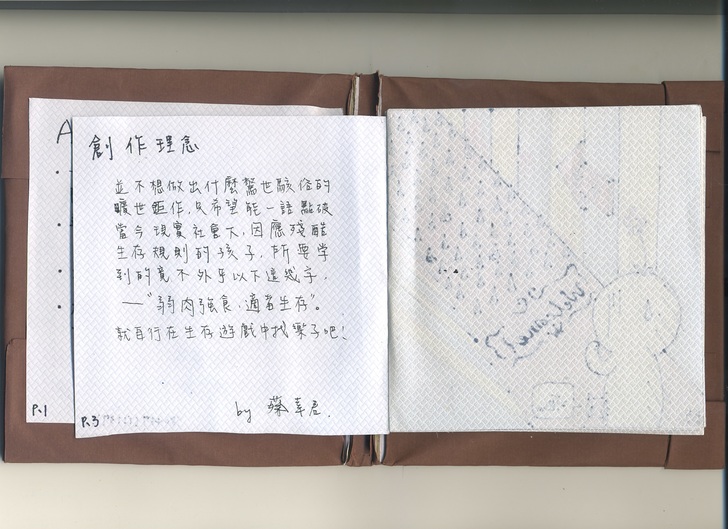 A
創作理念
並不想做出什麼驚世駭俗的
曠世鉅作,只希望能一語點破
當今現實社會下,因應殘酷
生存規則的孩子,所要學
到的竟不外乎以下這幾字,
—"弱肉強食,適者生存"。
就自行在生存遊戲中找樂子吧!
by 蔡幸君.
P.1
P.3